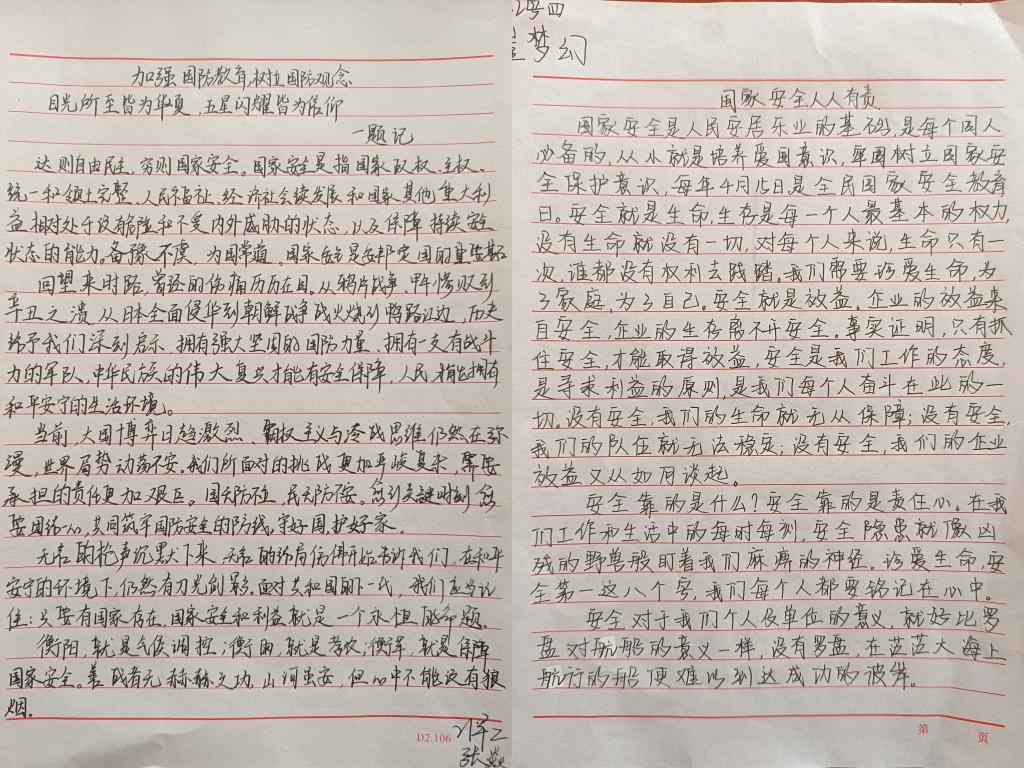 加强国防教育,树立国防观念
目光所至皆为华夏,五星闪耀皆为信仰
一题记
达则自由民主,穷则国家安全。国家安全是指国家政权、主权、
统一和领土完整、人民福祉、经济社会续发展和国家其他重大利
益相对处于没有危险和不受内外威胁的状态,以及保障持续安全
状态的能力。备豫不虞,为国常道。国家安全是安邦定国的重要基石
回望来时路,曾经的伤痛历历在目。从鸦片战争、甲午惨败到
辛丑之溃,从日本全面侵华到朝鲜战争战火烧到鸭路江边,历史
给予我们深刻启示,拥有强大坚固的国防力量、拥有一支有战斗
力的军队,中华民族的伟大复兴才能有安全保障,人民才能拥有
和平安宁的生活环境。
当前,大国博弈日趋激烈、霸权主义与冷战思维仍然在弥
漫,世界局势动荡不安。我们所面对的挑战更加严峻复杂,需要
承担的责任更加艰巨。国无防不立,民无防不安。愈到关键时刻,愈
要团结一心,共同筑牢国防安全的防线,守好国,护好家。
无声的枪声沉默下来,
安宁的环境下,仍然有刀光剑影。面对共和国的下一代,我们应当记
住:只要有国家存在,国家安全和利益就是一个永恒的命题。
衡阳,就是气候调控;衡的,就是考农;衡军,就是保障
国家安全。善战者无赫赫之功,山河虽安,但心中不能没有狼
烟。
D2.106
张焱
2号四
梦幻
国家安全人人有责
国家安全是人民安居乐业的基础,是每个国人
必备的,从小就是培养爱国意识,牢固树立国家安
全保护意识,每年4月15日,是全民国家安全教育
日。安全就是生命,生存是每一个人最基本的权力,
没有生命就没有一切,对每个人来说,生命只有一
次,谁都没有权利去践踏。我们需要珍爱生命,为
了家庭,为了自己。安全就是效益。企业的效益来
自安全,企业的生存离不开安全。事实证明,只有抓
住安全,才能取得效益,安全是我们工作的态度,
是寻求利益的原则,是我们每个人奋斗在此的一
切。没有安全,我们的生命就无从保障;没有安全,
我们的队伍就无法稳定;没有安全,我们的企业
效益又从如何谈起。
安全靠的是什么?安全靠的是责任心。在我
们工作和生活中的每时每刻,安全隐患就像凶
残的野兽般盯着我们麻痹的神经。珍爱生命,安
全第一这八个字,我们每个人都要铭记在心中。
安全对于我们个人及单位的意义,就好比罗
盘对航船的意义一样,没有罗盘,在茫茫大海上
航行的船便难以到达成功的彼岸。
第 页